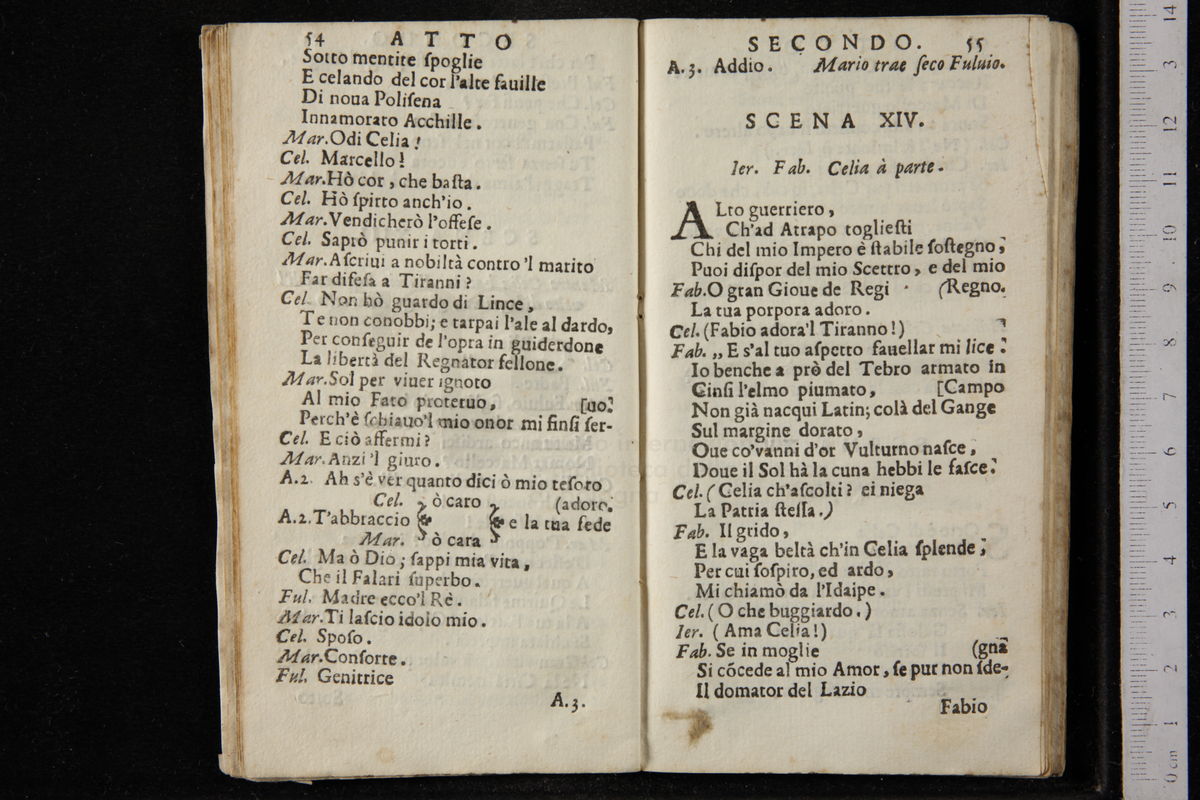 54 ATTO
Sotto mentite ſpoglie
E celando del cor l'alte fauille
Di noua Poliſena
Innamorato Acchille.
Mar.Odi Celia!
Cel. Marcello!
Mar.Hò cor, che baſta.
Cel. Hò ſpirto anch'io.
Mar.Vendicherò l'offeſe.
Cel. Saprò punir i torti.
Mar.Aſcriui a nobiltà contro 'l marito
Far difeſa a Tiranni?
Cel. Non hò guardo di Lince,
Te non conobbi; e tarpai l'ale al dardo,
Per conſeguir de l'opra in guiderdone
La libertà del Regnator fellone.
Mar.Sol per viuer ignoto
Al mio Fato proteruo, [uo.
Perch'è ſchiauo'l mio onor mi finſi ſer-
Cel. E ciò affermi?
Mar. Anzi 'l giuro.
A.2. Ah s'è ver quanto dici ò mio teſoro
Cel. ò caro (adoro.
A.2.T'abbraccio e la tua fede
Mar. ò cara
Cel. Ma ò Dio; ſappi mia vita,
Che il Falari ſuperbo.
Ful. Madre ecco'l Rè.
Mar.Ti laſcio idolo mio.
Cel. Spoſo.
Mar.Conſorte.
Ful. Genitrice
A.3.
SECONDO. 55
A.3. Addio. Mario trae ſeco Fuluio.
SCENA XIV.
Ier. Fab. Celia à parte.
ALto guerriero,
Ch'ad Atrapo toglieſti
Chi del mio Impero è ſtabile ſoſtegno,
Puoi diſpor del mio Scettro, e del mio
Fab.O gran Gioue de Regi (Regno.
La tua porpora adoro.
Cel.(Fabio adora'l Tiranno!)
Fab. „ E s'al tuo aſpetto fauellar mi lice.
Io benche a prò del Tebro armato in
Cinſi l'elmo piumato, [Campo
Non già nacqui Latin; colà del Gange
Sul margine dorato,
Oue co'vanni d'or Vulturno naſce,
Doue il Sol hà la cuna hebbi le faſce.
Cel.(Celia ch'aſcolti? ei niega
La Patria ſteſſa.)
Fab. Il grido,
E la vaga beltà ch'in Celia ſplende,
Per cui ſoſpiro, ed ardo,
Mi chiamò da l'Idaipe.
Cel.(O che buggiardo.)
Ier. (Ama Celia!)
Fab. Se in moglie (gna
Si cõcede al mio Amor, ſe pur non ſde-
Il domator del Lazio
Fabio